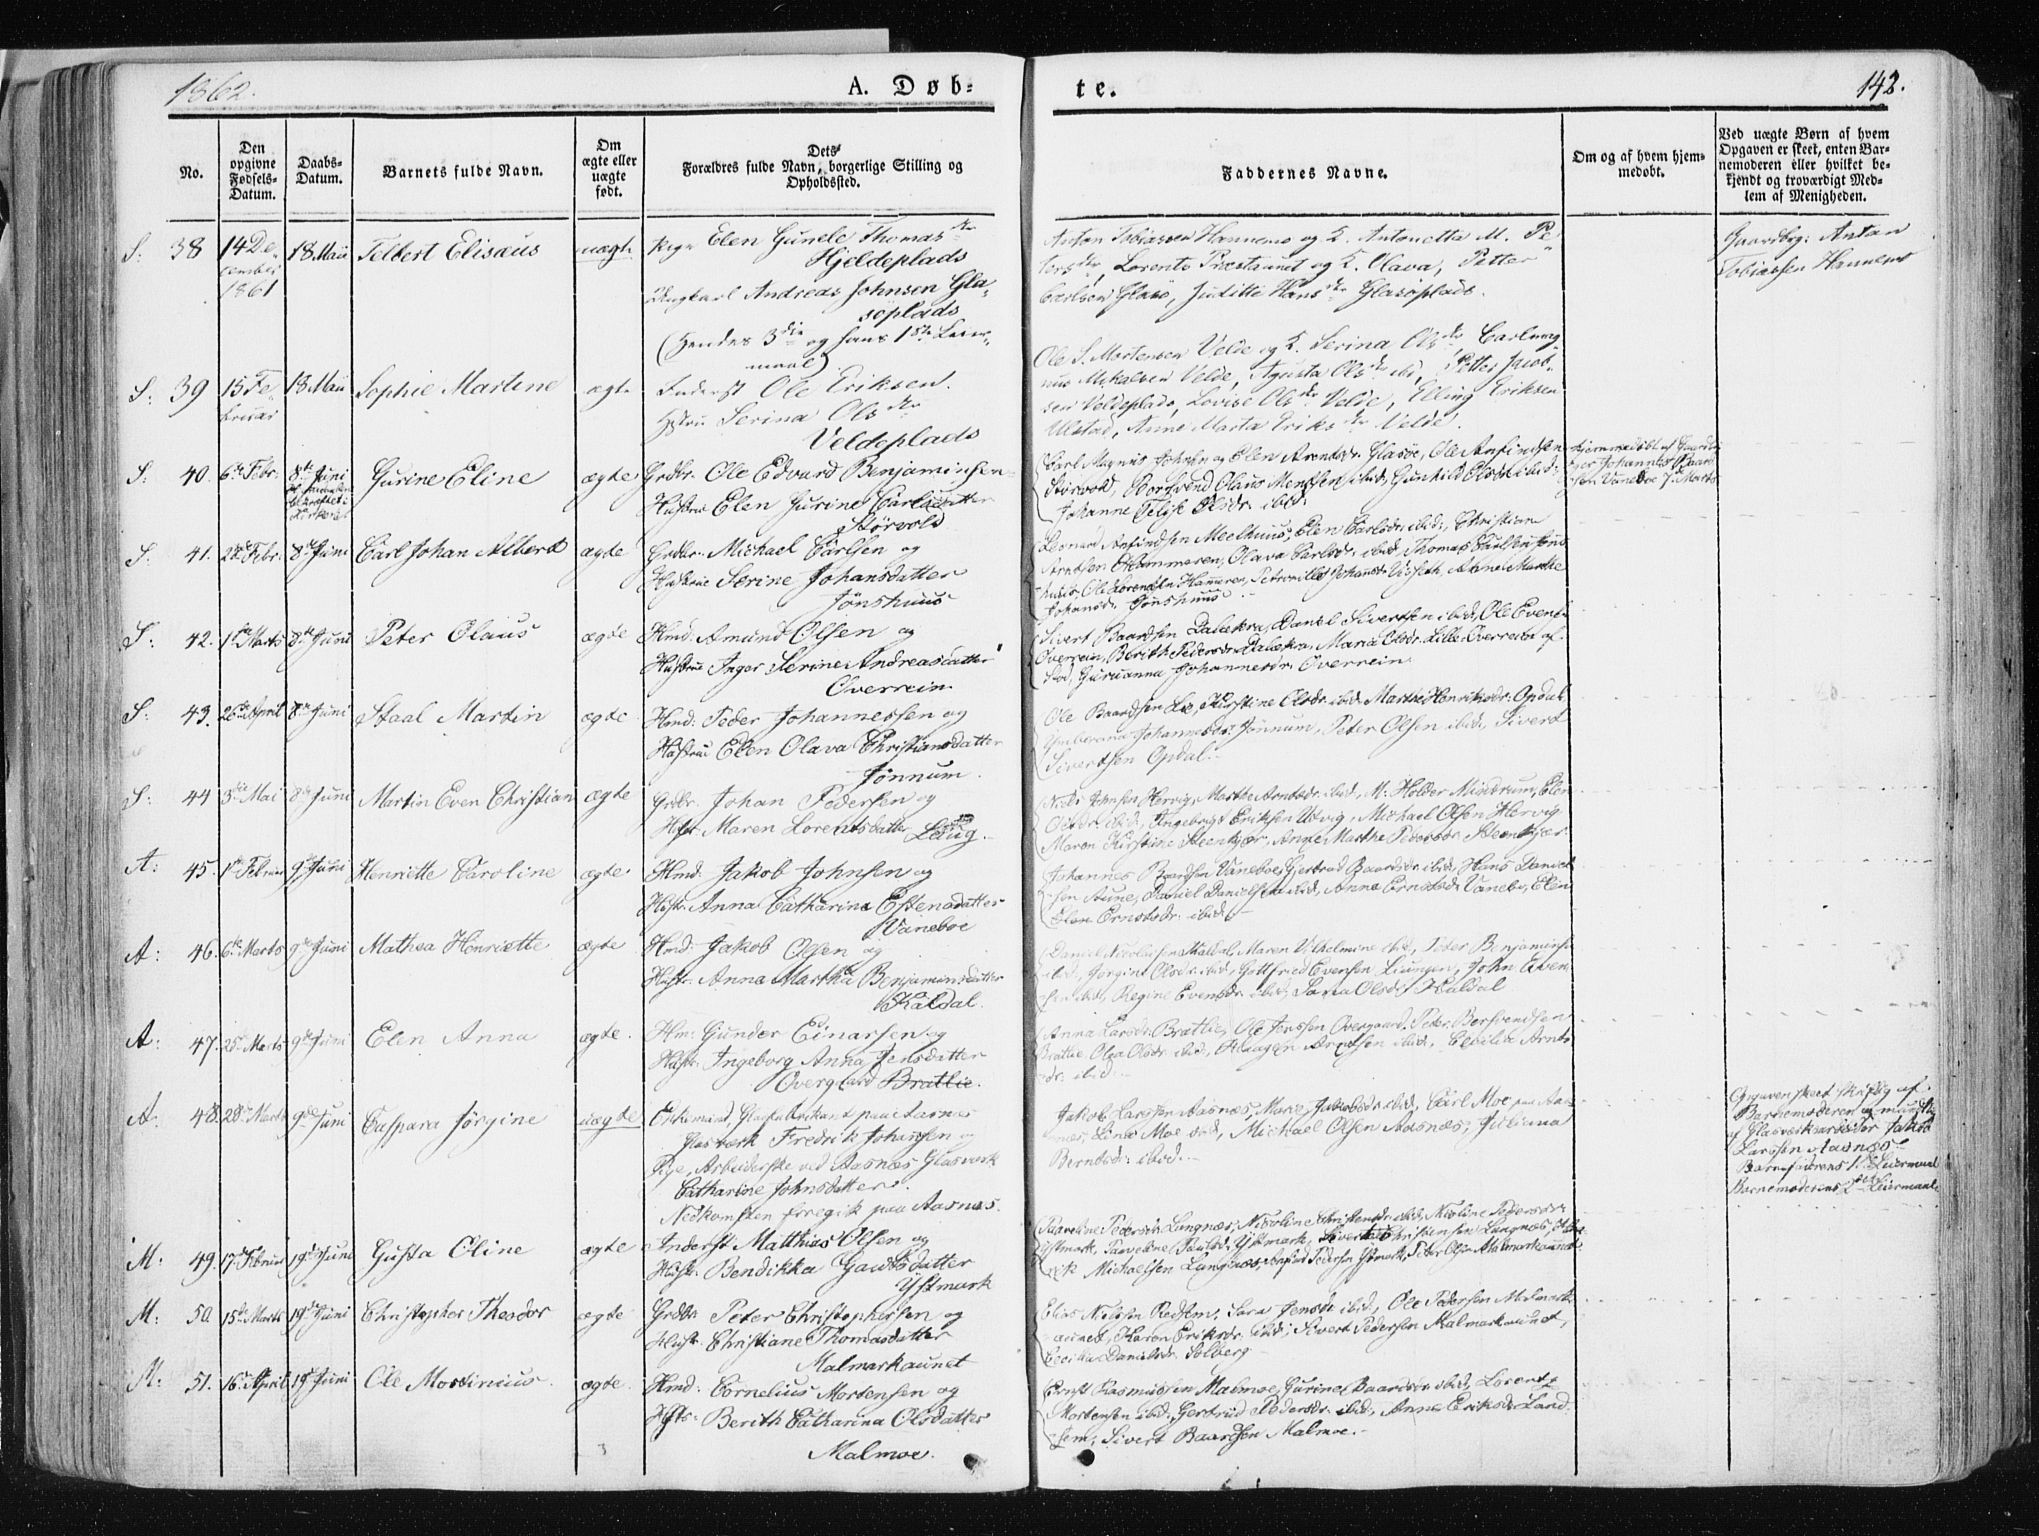 1862.
A. Døb-
te.
142.
No.
Den opgivne Fødsels-Datum.
Daabs-Datum.
Barnets fulde Navn.
Om ægte eller uægte født.
Dets Forældres fulde Navn, borgerlige Stilling og Opholdssted.
Faddernes Navne.
Om og af hvem hjem-medøbt.
Ved uægte Børn af hvem Opgaven er skeet, enten Bar-nemoderen eller hvilket be-kjendt og troværdigt Med-lem af Menigheden.
S: 38 14 De- 18 Maii Telbert Elisæus uægte Pige Elen Gunele Thomasdtr
cember Hjeldeplads
1861 Ungkarl Andreas Johnsen Gla-
søplads
(Hendes 3die og hans 1ste Leier-
maal)
Anton Tobiassen Hannemo og K. Antonetta M. Pe-
tersdtr, Lorents Præstaunet og K. Olava, Petter
Carlsen Glasø, Juditte Hansdtr Glasøplads.
Gaardbrg: Anton
Tobiassen Hannemo
S: 39 15 Fe- 18 Maii Sophie Martine ægte Inderst Ole Eriksen.
bruar Hstru Serina Olsdtr
Veldeplads
Ole S. Mortensen Velde og K. Serina Olsdtr Carlmag-
nus Mikalsen Velde, Agusta Olsdtr ibd, Petter Jacob-
sen Veldeplads, Lovise Olsdtr Velde, Elling Eriksen
Ulstad, Anne Marta Eriksdtr Velde.
S: 40. 6te Febr: 8de Juni Gurine Eline ægte Grdbr. Ole Edvard Benjaminsen
Hustru Elen Gurine Carlsdatter
Størvold
Carl Magnus Johnsen og Elen Arntsdr. Glasøe, Ole Anfindsen
Størvold, Borsvend Olaus Monssen ibid, Gunhild Olsdtr ibid:
Johanne Olsdr. ibid.
Hjemmedøbt af Gaardbru-
ger Johannes Baard-
sen Vaneboe 7. Marts
S: 41. Febr: 8de Juni Carl Johan Albert ægte Grdbr. Michael Carlsen og
Hustrue Serine Johansdatter
Jønshuus
Leonard Anfindsen Meelhuus, Elen Carlsdr. ibid, Christian
Arntsen Hammeren, Olava Carlsdr. ibid, Thomas Carlsen Jøns-
huus, Ole Lorentsen Hammeren, Petronille Johansdr.
Johansdr. Jønshuus
S: 42. 1ste Marts 8de Juni Peter Olaus ægte Hmd: Amund Olsen og
Hustru Inger Serine Andreasdatter
Overrein.
Sivert Baardsen Dalekra, Daniel Sivertsen ibid, Ole Evens.
Overrein, Berith Pedersdr. Dalekra, Maria Olsdr. Lille Overrein af
Guruanna Johannesdr. Overrein
S: 43. 26de April 8de Juni Staal Martin ægte Hmd: Peder Johannessen og
Hustru Elen Olava Christiansdatter
Jønnum.
Ole Baardsen Lie, Kirstine Olsdr. ibid. Marthe Henriksdr. Opdal
Johannesdr. Jønnum, Peter Olsen ibid, Sivert
Sivertsen Opdal.
S: 44 3die Mai 8de Juni Martin Even Christian ægte Grdbr. Johan Pedersen og
Hustr. Maren Lorentsdatter
Niels Johnsen Hervig, Marthe Arntsdr. ibid, M. Holder Mindrum, Elen
ibid, Ingeborg Eriksen Utvig, Michael Olsen Hervig
Maren Kirstine Steenkjær, Anne Marthe Pedersdr. Steenkjær
A: 45. 1ste Februar 9de Juni Henriette Caroline ægte Hmd: Jakob Johnsen og
Hustr. Anna Catharina Estensdatter
Vaneboe
Johannes Baardsen Vaneboe, Gertrud Baardsdr. ibid, Hans Daniel-
sen Aune, Daniel Danielsen ibid, Anna Ernstsdr. Vanebo, Elen
Elen Ernstsdr. ibid.
A: 46. 6te Marts 9de Juni Mathea Henriette ægte Hmd: Jakob Olsen og
Hustr. Anna Martha Benjaminsdatter
Kaldal.
Daniel Nicolaisen Kaldal, Maren Vilhelmine ibid, Peder Benjamins.
ibid, Jørgine Olsdr. ibid, Gottfried Evensen Liungen, John Even-
sen ibid, Regine Evensdr. ibid, Sara Olsdr. Kaldal
A: 47. 25de Marts 9de Juni Elen Anna ægte. Hm: Gunder Einarsen og
Hustr. Ingeborg Anna Jensdatter
Overgaard Bratlie.
Anna Larsdr. Bratlie, Ole Jenssen Overgaard, Peter Bersvendsen
Bratlie, Olea Olsdr. ibid, Haagen Arntsen ibid, Cecilia Arnts-
dr. ibid
A: 48. 28de Marts 9de Juni Caspara Jørgine uægte Enkemand, Glasfabrikant paa Aasnes
Glasværk Fredrik Johansen og
Pige, Arbeiderske ved Aasnæs Glasværk
Catharine Johnsdatter.
Nedkomsten foregik paa Aasnæs.
Jakob Larssen Aasnæs, Marie Jakobsdr. ibid, Carl Moe paa Aas-
næs, Lina Moe ibid, Michael Olsen Aasnæs, Juliana
Berntsdr. ibid.
Opgaven skeet skriftlig af
Barnemoderen og mundtlig
af Glasværksarbeider Jakob
Larssen Aasnæs
Barnefaderens 1ste Leiermaal
Barnemoderens 2det Leiermaal.
M: 49. 17de Februar 19de Juni Gusta Oline ægte Inderst Matthias Olsen og
Hustr. Bendikka Gautsdatter
Ystmark
Paaveline Pedersdr. Lungnæs, Nicoline Christensdr. ibid, Nicoline Pedersdr.
Ystmark, Paaveline Paulsd. Ystmark, Christiansen Lungnæs,
Michaelsen Lungnæs, Pedersen Ystmark, Peter Olsen Malmarkaunet
M: 50. 15de Marts 19de Juni Christopher Theodor ægte Grdbr. Peter Christophersen og
Hustr. Christiane Thomasdatter
Malmarkaunet
Elias Nilssen Rødsem, Sara Jensdr. ibid, Ole Pedersen Malmark-
aunet, Karen Eriksdr. ibid, Sivert Pedersen Malmarkaunet,
Cecilia Danielsdr. Solberg
M: 51. 16de April 19de Juni Ole Mortinius ægte Hmd: Cornelius Mortensen og
Hustr: Berith Catharina Olsdatter
Malmoe.
Ernst Rasmussen Malmoe, Gurine Baardsdr. ibid, Lorents
Mortensen ibid, Gertrud Pedersdr. ibid, Anne Eriksdr. Land-
sem, Sivert Baardsen Malmoe.